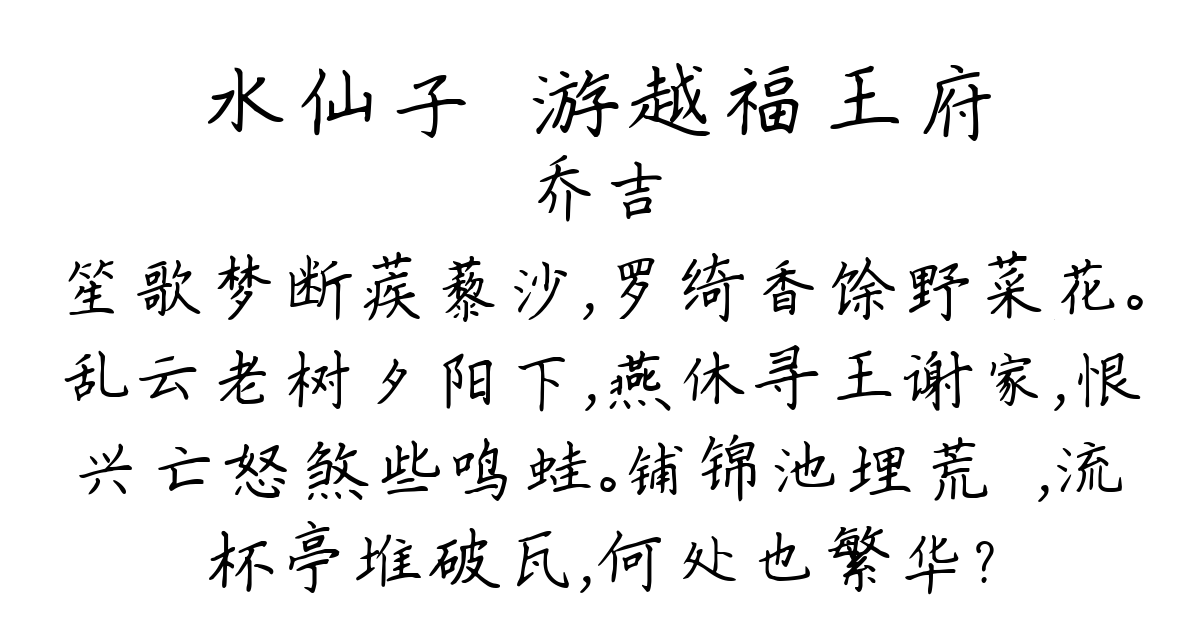 水仙子 游越福王府
乔吉
笙歌梦断蒺藜沙,罗绮香馀野菜花。
乱云老树夕阳下,燕休寻王谢家,恨
兴亡怒煞些鸣蛙。铺锦池埋荒 ,流
杯亭堆破瓦,何处也繁华?